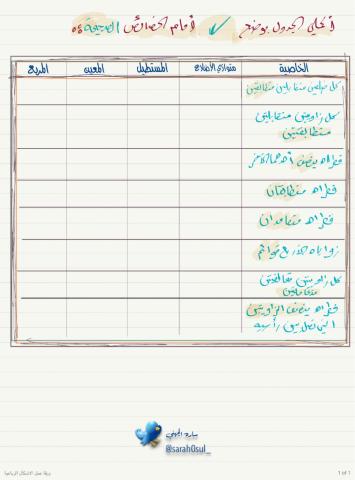 أكملي الجدول بوضع ✓ أمام الخصائص الصحيحة
الخاصية متوازي الأضلاع المستطيل المعين المربع
كل ضلعين متقابلين متطابقين
كل زاويتين متقابلتين
متطابقتين
قطراه ينصف أحدهما الآخر
قطراه متطابقان
قطراه متعامدان
زواياه الأربع قوائم
كل زاويتين متحالفتين
متكاملتين
قطراه ينصف الزاويتين
التي تصلا بين رأسيه
سارة الجهني
@sarah0sul_
ورقة عمل الاشكال الرباعية
1 of 1